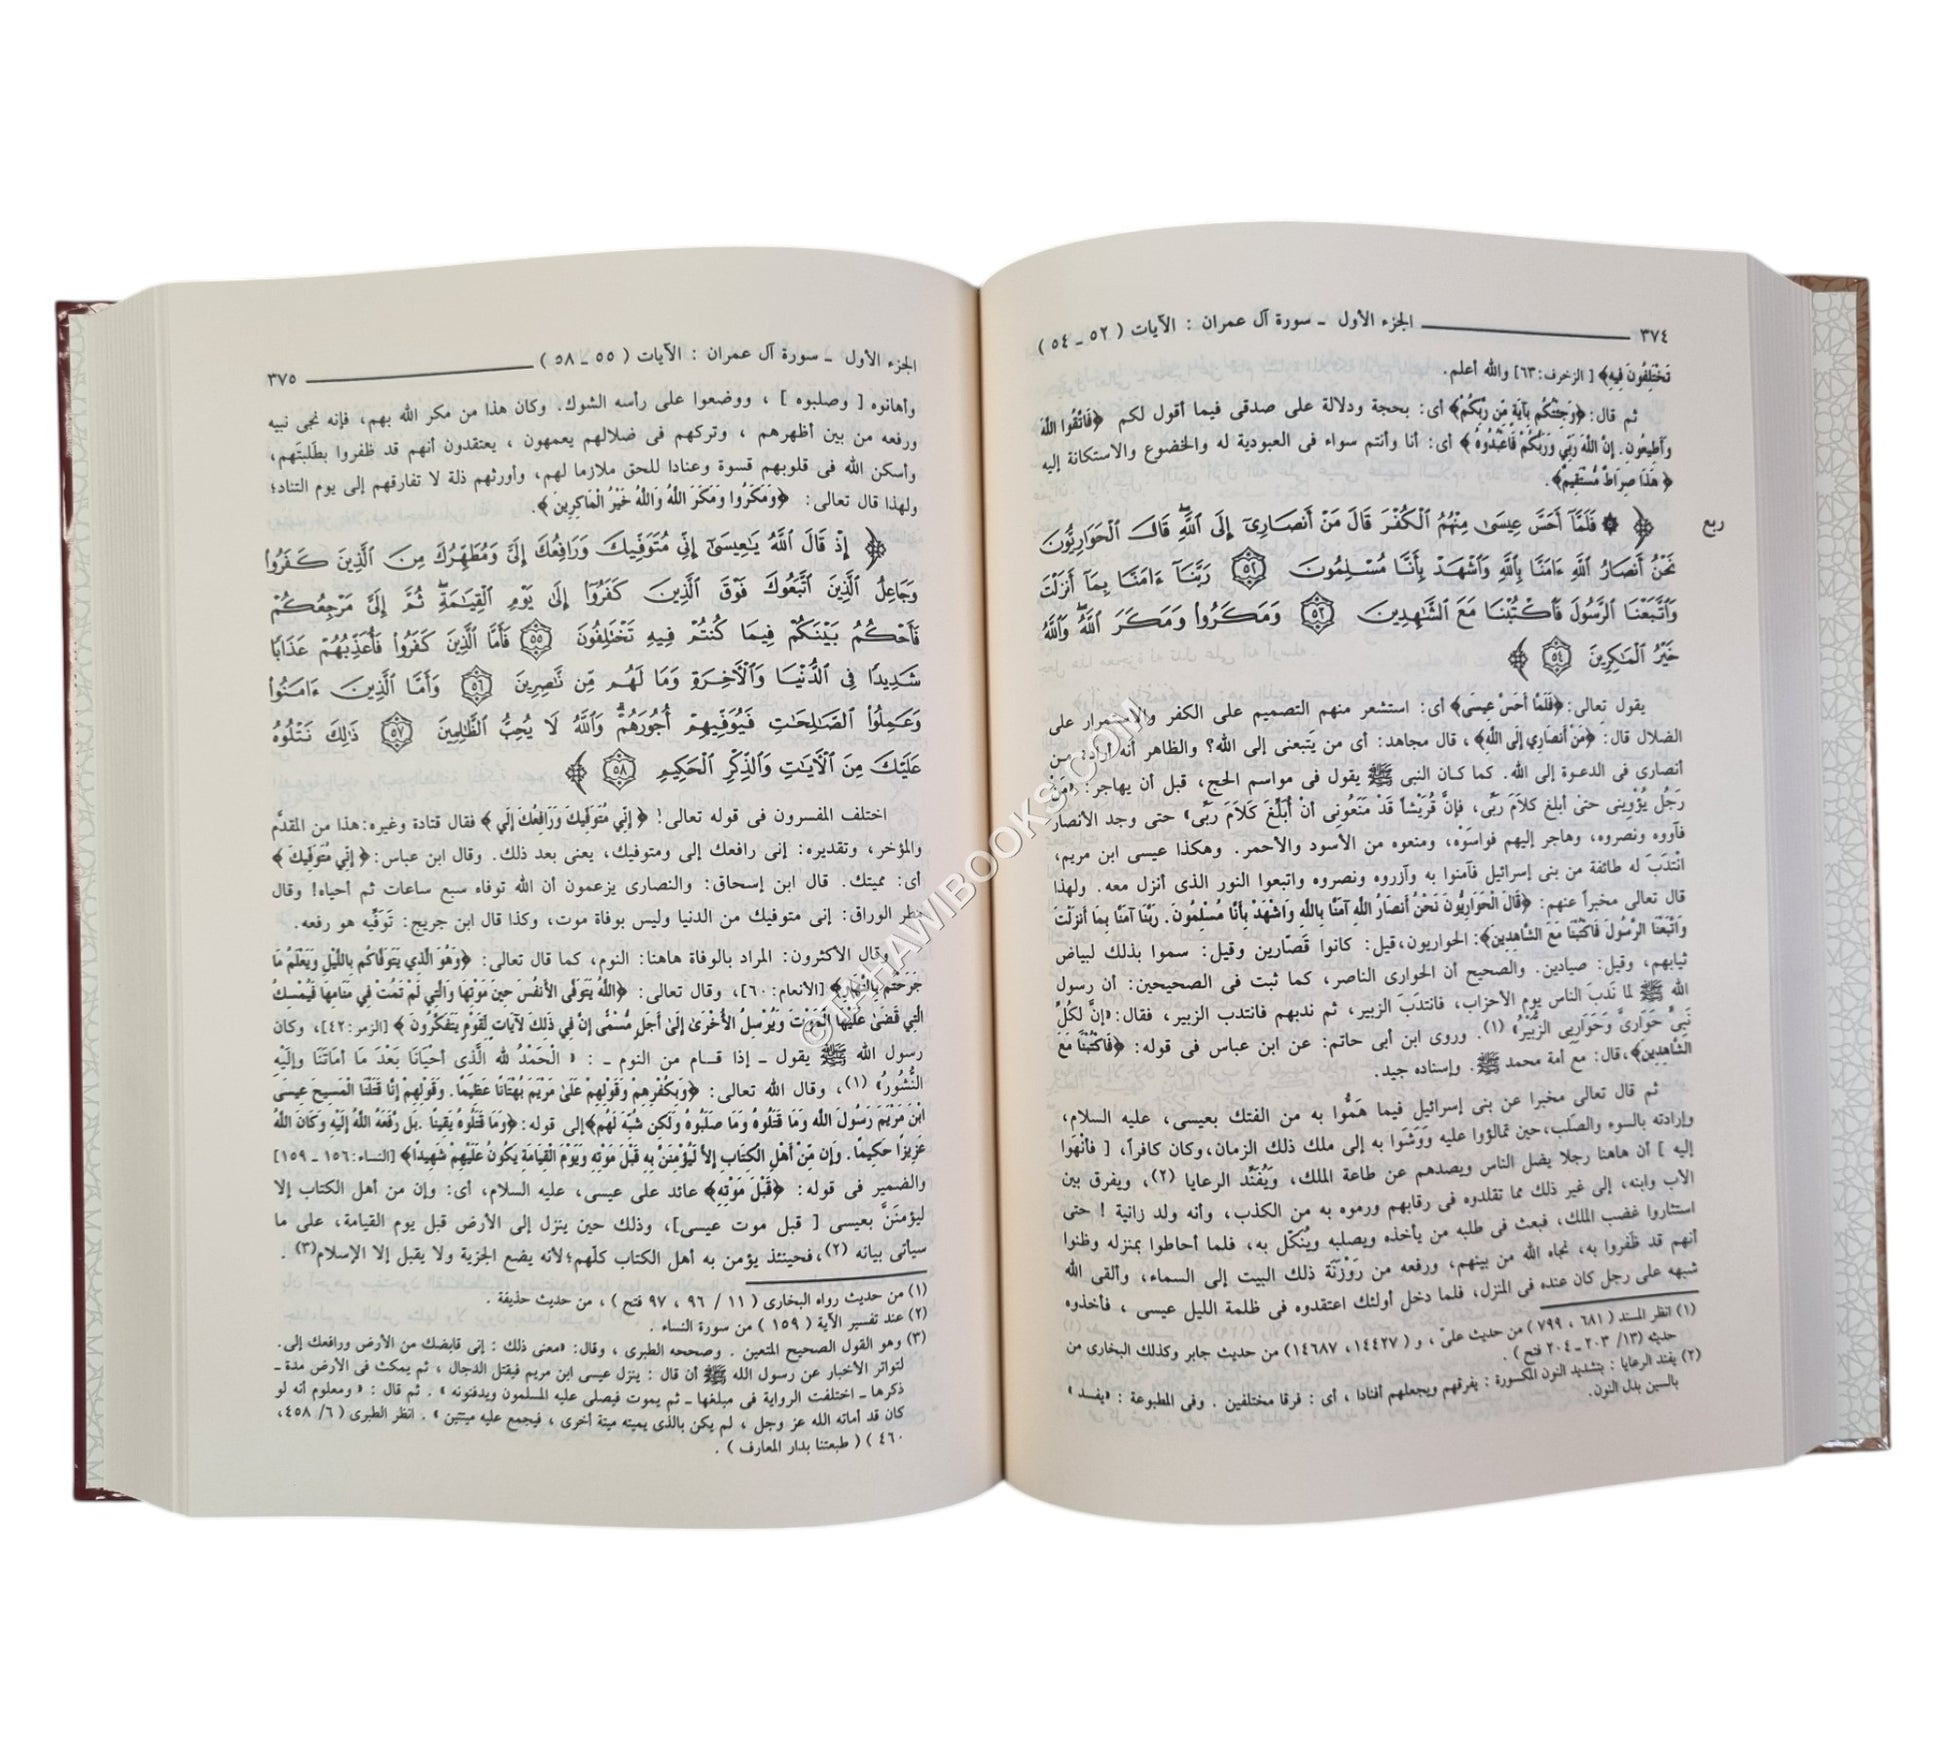 ٣٧٤ الجزء الأول ـ سورة آل عمران : الآيات ( ٥٢ ـ ٥٤ )
تَخْتَلِفُونَ فِيهِ﴾ [ الزخرف:٦٣] والله أعلم.
ثم قال: ﴿وَجِئْتُكُم بِآيَةٍ مِّن رَّبِّكُمْ﴾ أى: بحجة ودلالة على صدقى فيما أقول لكم ﴿فَاتَّقُوا اللَّهَ
وَأَطِيعُونِ. إِنَّ اللَّهَ رَبِّي وَرَبُّكُمْ فَاعْبُدُوهُ ﴾ أى: أنا وأنتم سواء فى العبودية له والخضوع والاستكانة إليه
﴿ هَذَا صِرَاطٌ مُّسْتَقِيمٌ﴾.
ربع
﴿ ۞ فَلَمَّآ أَحَسَّ عِيسَىٰ مِنْهُمُ ٱلْكُفْرَ قَالَ مَنْ أَنصَارِىٓ إِلَى ٱللَّهِ ۖ قَالَ ٱلْحَوَارِيُّونَ
نَحْنُ أَنصَارُ ٱللَّهِ ءَامَنَّا بِٱللَّهِ وَٱشْهَدْ بِأَنَّا مُسْلِمُونَ ٥٢ رَبَّنَآ ءَامَنَّا بِمَآ أَنزَلْتَ
وَٱتَّبَعْنَا ٱلرَّسُولَ فَٱكْتُبْنَا مَعَ ٱلشَّٰهِدِينَ ٥٣ وَمَكَرُوا۟ وَمَكَرَ ٱللَّهُ ۖ وَٱللَّهُ
خَيْرُ ٱلْمَٰكِرِينَ ٥٤ ﴾
يقول تعالى: ﴿فَلَمَّا أَحَسَّ عِيسَى﴾ أى: استشعر منهم التصميم على الكفر والاستمرار على
الضلال قال: ﴿مَنْ أَنصَارِي إِلَى اللَّهِ﴾، قال مجاهد: أى من يَتبعنى إلى الله؟ والظاهر أنه أراد: من
أنصارى فى الدعوة إلى الله. كما كـان النبى ﷺ يقول فى مواسم الحج، قبل أن يهاجر: «مَنْ
رَجُل يُؤْوِينى حتى أبلغ كلاَمَ رَبِّى، فإنَّ قُرَيْشاً قَدْ مَنَعُونِى أنْ أُبَلِّغَ كَلاَمَ رَبِّى» حتى وجد الأنصار
فآووه ونصروه، وهاجر إليهم فواسَوْه، ومنعوه من الأسود والأحمر. وهكذا عيسى ابن مريم،
انْتدَبَ له طائفة من بنى إسرائيل فآمنوا به وآزروه ونصروه واتبعوا النور الذى أنزل معه. ولهذا
قال تعالى مخبراً عنهم: ﴿قَالَ الْحَوَارِيُّونَ نَحْنُ أَنصَارُ اللَّهِ آمَنَّا بِاللَّهِ وَاشْهَدْ بِأَنَّا مُسْلِمُونَ. رَبَّنَا آمَنَّا بِمَا أَنزَلْتَ
وَاتَّبَعْنَا الرَّسُولَ فَاكْتُبْنَا مَعَ الشَّاهِدِينَ﴾: الحواريون،قيل: كانوا قَصّارين وقيل: سموا بذلك لبياض
ثيابهم، وقيل: صيادين. والصحيح أن الحوارى الناصر، كما ثبت فى الصحيحين: أن رسول
الله ﷺ لما نَدَبَ الناس يوم الأحزاب، فانتدَبَ الزبير، ثم ندبهم فانتدب الزبير، فقال: «إنَّ لكُلِّ
نَبِىٍّ حَوَارِىَّ وَحَوَارِيى الزُّبَيْرُ» (١). وروى ابن أبى حاتم: عن ابن عباس فى قوله: ﴿فَاكْتُبْنَا مَعَ
الشَّاهِدِينَ﴾،قال: مع أمة محمد ﷺ. وإسناده جيد.
ثم قال تعالى مخبرا عن بنى إسرائيل فيما هَمُّوا به من الفتك بعيسى، عليه السلام،
وإرادته بالسوء والصَّلب،حين تمالؤوا عليه وَوَشَوا به إلى ملك ذلك الزمان،وكان كافراً، [ فأنْهَوا
إليه ] أن هاهنا رجلا يضل الناس ويصدهم عن طاعة الملك، وَيُفَنِّد الرعايا (٢)، ويفرق بين
الأب وابنه، إلى غير ذلك مما تقلدوه فى رقابهم ورموه به من الكذب، وأنه ولد زانية ! حتى
استثاروا غضب الملك، فبعث فى طلبه من يأخذه ويصلبه ويُنَكّل به، فلما أحاطوا بمنزله وظنوا
أنهم قد ظَفروا به، نجاه الله من بينهم، ورفعه من رَوْزَنَة ذلك البيت إلى السماء، وألقى الله
شبهه على رجل كان عنده فى المنزل، فلما دخل أولئك اعتقدوه فى ظلمة الليل عيسى ، فأخذوه
(١) انظر المسند ( ٦٨١ ، ٧٩٩ ) من حديث علىّ ، و ( ١٤٤٢٧ ، ١٤٦٨٧ ) من حديث جابر وكذلك البخارى من
حديثه (١٣/ ٢٠٣ ـ ٢٠٤ فتح ) .
(٢) يفند الرعايا : بتشديد النون المكسورة : يفرقهم ويجعلهم أفنادا ، أى : فرقا مختلفين . وفى المطبوعة : «يفسد »
بالسين بدل النون.
الجزء الأول ـ سورة آل عمران : الآيات ( ٥٥ ـ ٥٨ ) ٣٧٥
وأهانوه [ وصلبوه ] ، ووضعوا على رأسه الشوك. وكان هذا من مكر الله بهم، فإنه نجى نبيه
ورفعه من بين أظهرهم ، وتركهم فى ضلالهم يعمهون ، يعتقدون أنهم قد ظفروا بطَلبتهم،
وأسكن الله فى قلوبهم قسوة وعنادا للحق ملازما لهم، وأورثهم ذلة لا تفارقهم إلى يوم التناد؛
ولهذا قال تعالى: ﴿وَمَكَرُوا وَمَكَرَ اللَّهُ وَاللَّهُ خَيْرُ الْمَاكِرِينَ ﴾.
﴿ إِذْ قَالَ ٱللَّهُ يَٰعِيسَىٰٓ إِنِّى مُتَوَفِّيكَ وَرَافِعُكَ إِلَىَّ وَمُطَهِّرُكَ مِنَ ٱلَّذِينَ كَفَرُوا۟
وَجَاعِلُ ٱلَّذِينَ ٱتَّبَعُوكَ فَوْقَ ٱلَّذِينَ كَفَرُوٓا۟ إِلَىٰ يَوْمِ ٱلْقِيَٰمَةِ ۖ ثُمَّ إِلَىَّ مَرْجِعُكُمْ
فَأَحْكُمُ بَيْنَكُمْ فِيمَا كُنتُمْ فِيهِ تَخْتَلِفُونَ ٥٥ فَأَمَّا ٱلَّذِينَ كَفَرُوا۟ فَأُعَذِّبُهُمْ عَذَابًا
شَدِيدًا فِى ٱلدُّنْيَا وَٱلْأَخِرَةِ وَمَا لَهُم مِّن نَّٰصِرِينَ ٥٦ وَأَمَّا ٱلَّذِينَ ءَامَنُوا۟
وَعَمِلُوا۟ ٱلصَّٰلِحَٰتِ فَيُوَفِّيهِمْ أُجُورَهُمْ ۗ وَٱللَّهُ لَا يُحِبُّ ٱلظَّٰلِمِينَ ٥٧ ذَٰلِكَ نَتْلُوهُ
عَلَيْكَ مِنَ ٱلْأَيَٰتِ وَٱلذِّكْرِ ٱلْحَكِيمِ ٥٨ ﴾
اختلف المفسرون فى قوله تعالى! ﴿ إِنِّي مُتَوَفِّيكَ وَرَافِعُكَ إِلَيَّ ﴾ فقال قتادة وغيره: هذا من المقدَّم
والمؤخر، وتقديره: إنى رافعك إلى ومتوفيك، يعنى بعد ذلك. وقال ابن عباس: ﴿ إِنِّي مُتَوَفِّيكَ ﴾
أى: مميتك. قال ابن إسحاق: والنصارى يزعمون أن الله توفاه سبع ساعات ثم أحياه! وقال
مطر الوراق: إنى متوفيك من الدنيا وليس بوفاة موت، وكذا قال ابن جريج: تَوَفِّيه هو رفعه.
وقال الأكثرون: المراد بالوفاة هاهنا: النوم، كما قال تعالى: ﴿وَهُوَ الَّذِي يَتَوَفَّاكُم بِاللَّيْلِ وَيَعْلَمُ مَا
جَرَحْتُم بِالنَّهَارِ﴾ [الأنعام: ٦٠]، وقال تعالى: ﴿اللَّهُ يَتَوَفَّى الأَنفُسَ حِينَ مَوْتِهَا وَالَّتِي لَمْ تَمُتْ فِي مَنَامِهَا فَيُمْسِكُ
الَّتِي قَضَىٰ عَلَيْهَا الْمَوْتَ وَيُرْسِلُ الأُخْرَىٰ إِلَىٰ أَجَلٍ مُّسَمًّى إِنَّ فِي ذَلِكَ لآيَاتٍ لِّقَوْمٍ يَتَفَكَّرُونَ ﴾ [الزمر: ٤٢]، وكان
رسول الله ﷺ يقول ـ إذا قام من النوم ـ : « الْحَمْدُ لله الَّذِى أحْيَانَا بَعْدَ مَا أمَاتَنَا وَإلَيْهِ
النُّشُورُ» (١)، وقال الله تعالى: ﴿وَبِكُفْرِهِمْ وَقَوْلِهِمْ عَلَىٰ مَرْيَمَ بُهْتَانًا عَظِيمًا. وَقَوْلِهِمْ إِنَّا قَتَلْنَا الْمَسِيحَ عِيسَى
ابْنَ مَرْيَمَ رَسُولَ اللَّهِ وَمَا قَتَلُوهُ وَمَا صَلَبُوهُ وَلَكِن شُبِّهَ لَهُمْ﴾إلى قوله: ﴿وَمَا قَتَلُوهُ يَقِينًا .بَل رَّفَعَهُ اللَّهُ إِلَيْهِ وَكَانَ اللَّهُ
عَزِيزًا حَكِيمًا. وَإِن مِّنْ أَهْلِ الْكِتَابِ إِلاَّ لَيُؤْمِنَنَّ بِهِ قَبْلَ مَوْتِهِ وَيَوْمَ الْقِيَامَةِ يَكُونُ عَلَيْهِمْ شَهِيدًا﴾ [النساء: ١٥٦ ـ ١٥٩]
والضمير فى قوله: ﴿قَبْلَ مَوْتِهِ﴾ عائد على عيسى، عليه السلام، أى: وإن من أهل الكتاب إلا
ليؤمنَنَّ بعيسى [ قبل موت عيسى]، وذلك حين ينزل إلى الأرض قبل يوم القيامة، على ما
سيأتى بيانه (٢)،فحينئذ يؤمن به أهل الكتاب كلّهم؛لأنه يضع الجزية ولا يقبل إلا الإسلام(٣) .
(١) من حديث رواه البخارى ( ١١ / ٩٦ ، ٩٧ فتح ) ، من حديث حذيفة .
(٢) عند تفسير الآية ( ١٥٩ ) من سورة النساء .
(٣) وهو القول الصحيح المتعين . وصححه الطبرى ، وقال: «معنى ذلك : إنى قابضك من الأرض ورافعك إلى.
لتواتر الأخبار عن رسول الله ﷺ أن قال : ينزل عيسى ابن مريم فيقتل الدجال ، ثم يمكث فى الأرض مدة ـ
ذكرها ـ اختلفت الرواية فى مبلغها ـ ثم يموت فيصلى عليه المسلمون ويدفنونه » . ثم قال : « ومعلوم أنه لو
كان قد أماته الله عز وجل ، لم يكن بالذى يميته ميتة أخرى ، فيجمع عليه ميتتين » . انظر الطبرى ( ٦/ ٤٥٨،
٤٦٠ ) ( طبعتنا بدار المعارف ) .